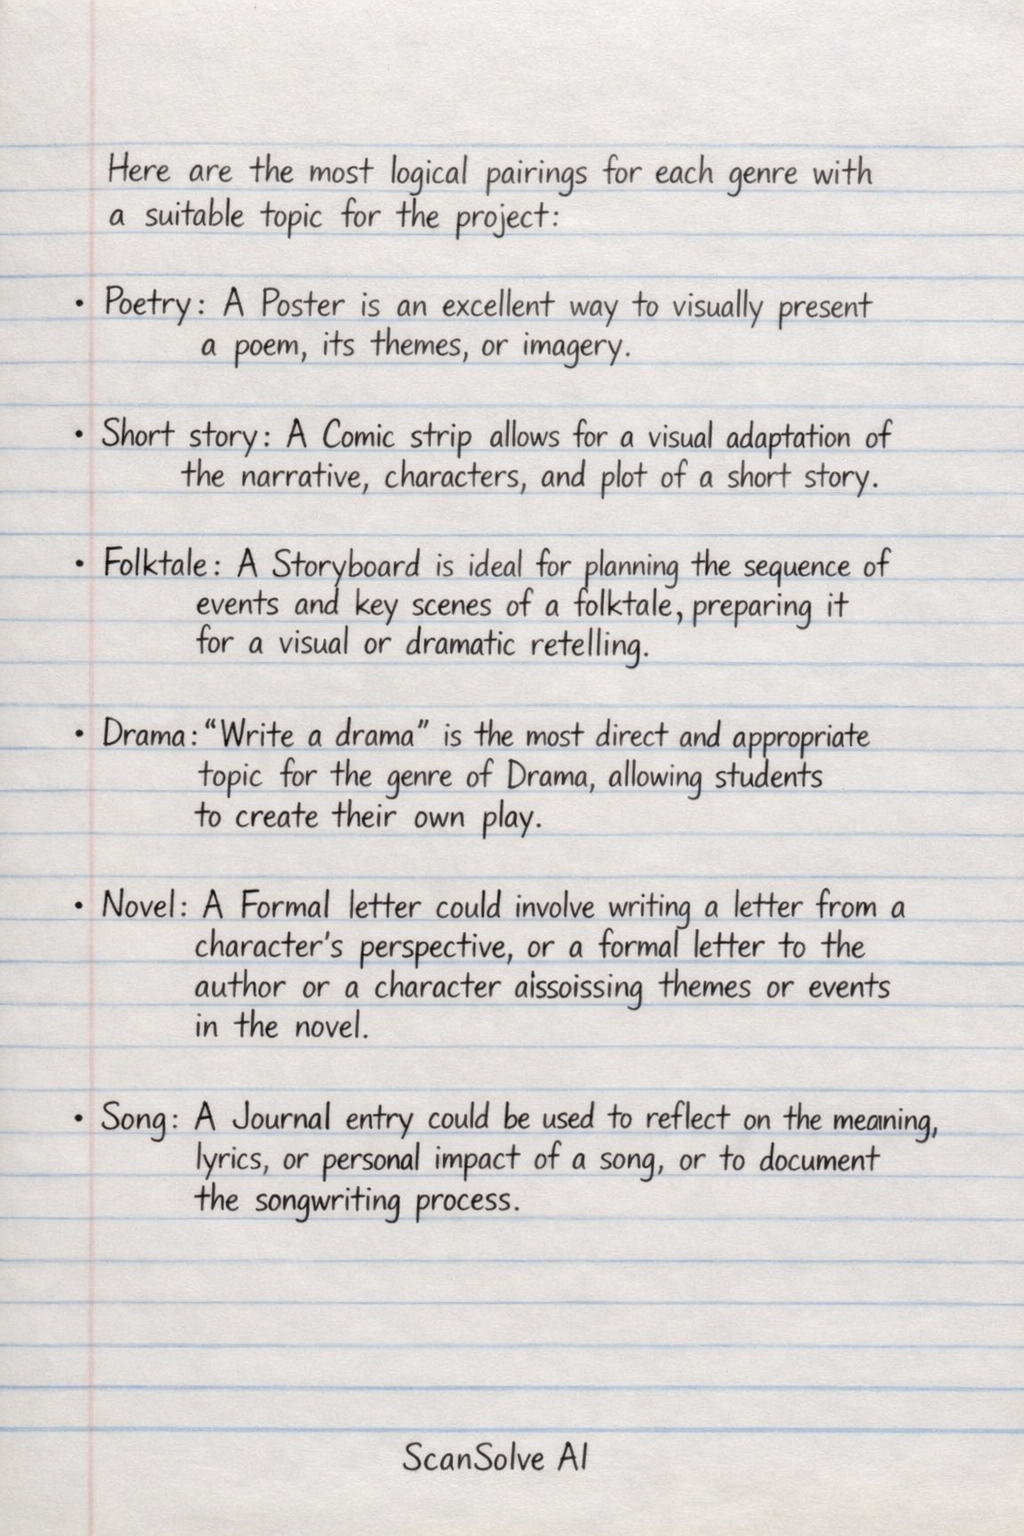 Here are the most logical pairings for each genre with
a suitable topic for the project:
• Poetry: A Poster is an excellent way to visually present
a poem, its themes, or imagery.
• Short story: A Comic strip allows for a visual adaptation of
the narrative, characters, and plot of a short story.
• Folktale: A Storyboard is ideal for planning the sequence of
events and key scenes of a folktale, preparing it
for a visual or dramatic retelling.
• Drama: “Write a drama” is the most direct and appropriate
topic for the genre of Drama, allowing students
to create their own play.
• Novel: A Formal letter could involve writing a letter from a
character's perspective, or a formal letter to the
author or a character aissoissing themes or events
in the novel.
• Song: A Journal entry could be used to reflect on the meaning,
lyrics, or personal impact of a song, or to document
the songwriting process.
ScanSolve AI